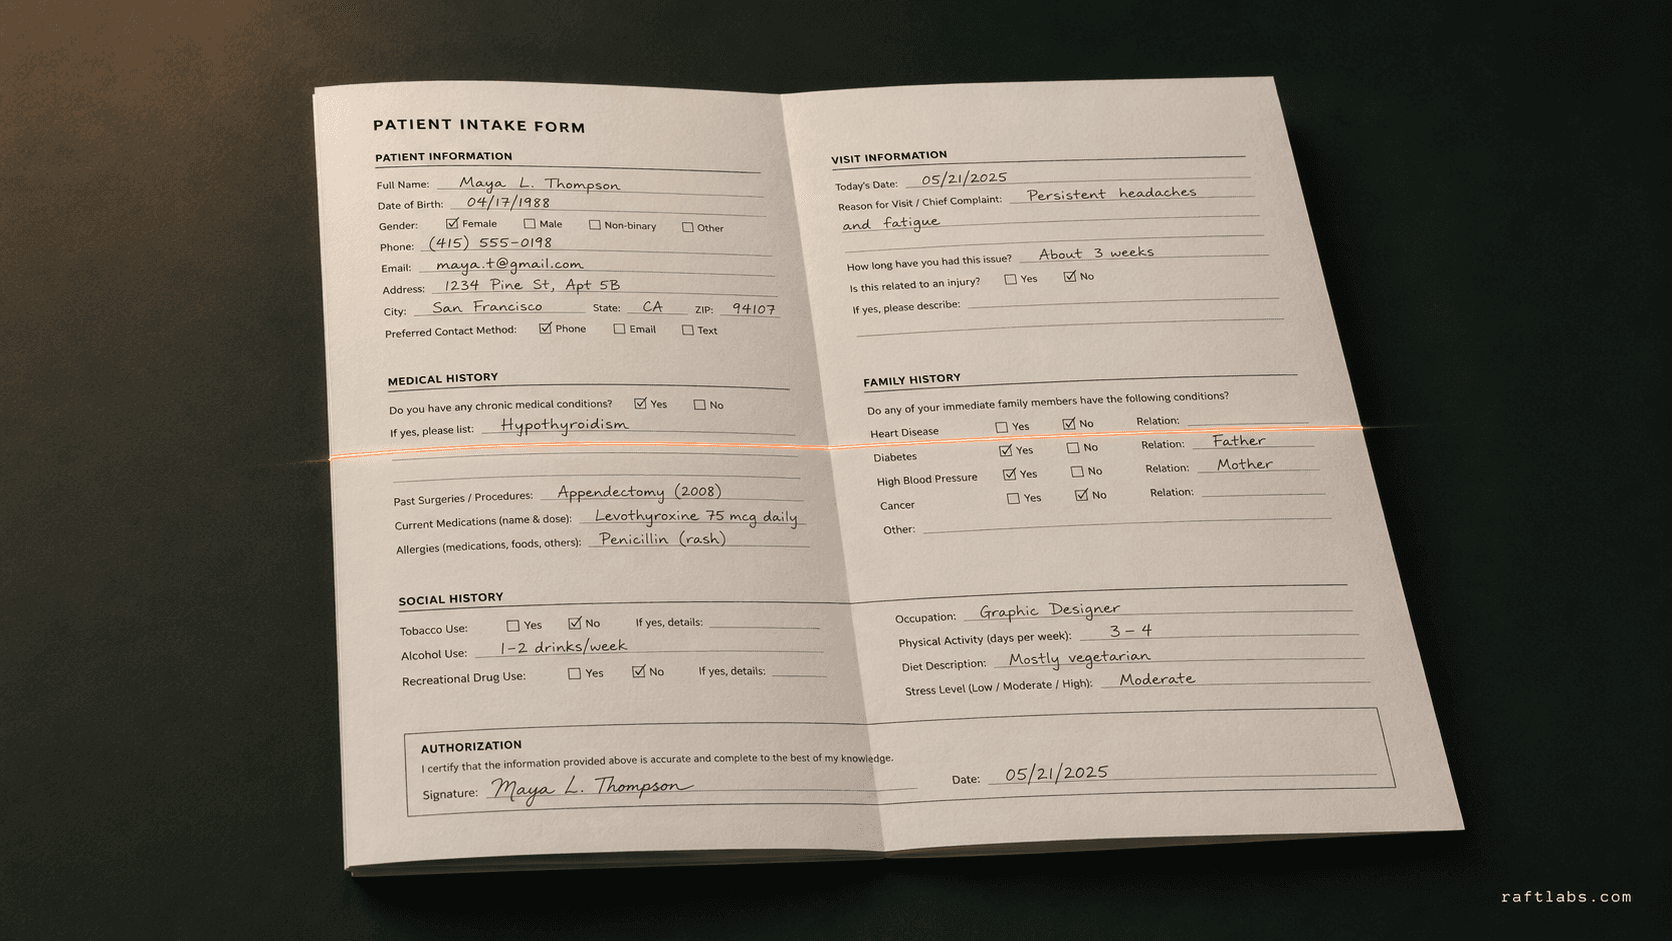 PATIENT INTAKE FORM
PATIENT INFORMATION
Full Name: Maya L. Thompson
Date of Birth: 04/17/1988
Gender: ☑ Female ☐ Male ☐ Non-binary ☐ Other
Phone: (415) 555-0198
Email: maya.t@gmail.com
Address: 1234 Pine St, Apt 5B
City: San Francisco State: CA ZIP: 94107
Preferred Contact Method: ☑ Phone ☐ Email ☐ Text
MEDICAL HISTORY
Do you have any chronic medical conditions? ☑ Yes ☐ No
If yes, please list: Hypothyroidism
Past Surgeries / Procedures: Appendectomy (2008)
Current Medications (name & dose): Levothyroxine 75 mcg daily
Allergies (medications, foods, others): Penicillin (rash)
SOCIAL HISTORY
Tobacco Use: ☐ Yes ☑ No If yes, details:
Alcohol Use: 1-2 drinks/week
Recreational Drug Use: ☐ Yes ☑ No If yes, details:
VISIT INFORMATION
Today's Date: 05/21/2025
Reason for Visit / Chief Complaint: Persistent headaches
and fatigue
How long have you had this issue? About 3 weeks
Is this related to an injury? ☐ Yes ☑ No
If yes, please describe:
FAMILY HISTORY
Do any of your immediate family members have the following conditions?
Heart Disease ☐ Yes ☑ No Relation:
Diabetes ☑ Yes ☐ No Relation: Father
High Blood Pressure ☑ Yes ☐ No Relation: Mother
Cancer ☐ Yes ☑ No Relation:
Other:
Occupation: Graphic Designer
Physical Activity (days per week): 3 – 4
Diet Description: Mostly vegetarian
Stress Level (Low / Moderate / High): Moderate
AUTHORIZATION
I certify that the information provided above is accurate and complete to the best of my knowledge.
Signature: Maya L. Thompson Date: 05/21/2025
raftlabs.com